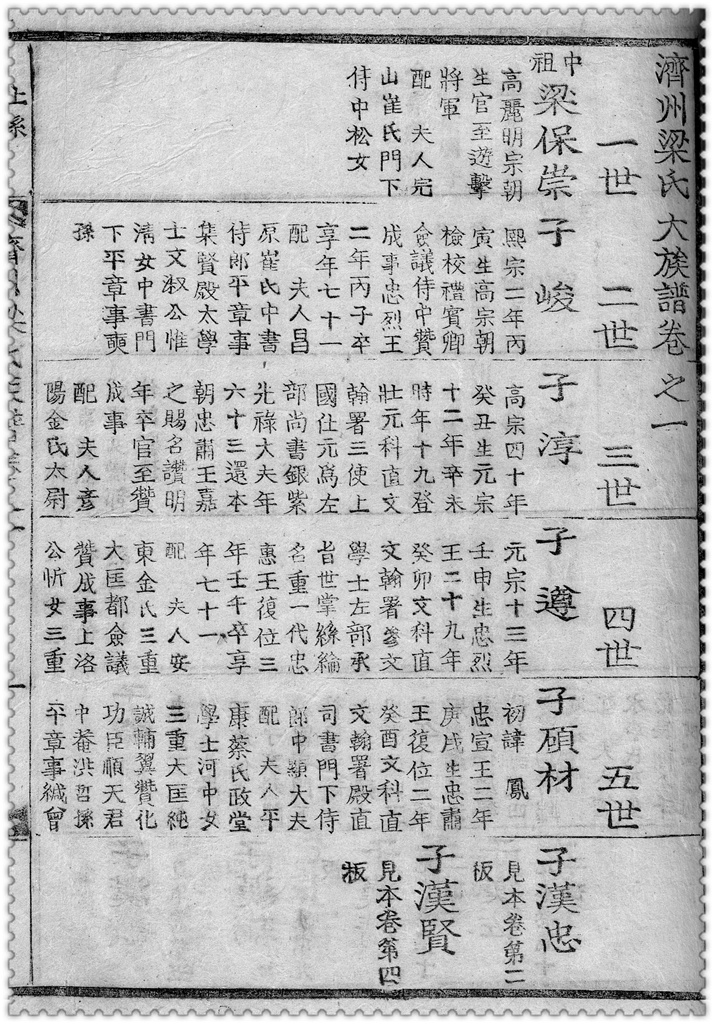 濟州梁氏大族譜卷之一
一世
中祖
梁保崇
高麗明宗朝
生官至遊擊
將軍
配　夫人完
山崔氏門下
侍中松女
二世
子峻
熙宗二年丙
寅生高宗朝
檢校禮賓卿
僉議侍中贊
成事忠烈王
二年丙子卒
享年七十一
配　夫人昌
原崔氏中書
侍郎平章事
集賢殿太學
士文淑公惟
淸女中書門
下平章事奭
孫
三世
子淳
高宗四十年
癸丑生元宗
十二年辛未
時年十九登
壯元科直文
翰署三使上
國仕元爲左
部尚書銀紫
光祿大夫年
六十三還本
朝忠肅王嘉
之賜名讚明
年卒官至贊
成事
配　夫人彦
陽金氏太尉
四世
子遵
元宗十三年
壬申生忠烈
王二十九年
癸卯文科直
文翰署參文
學士左部承
旨世掌絲綸
名重一代忠
惠王復位三
年壬午卒享
年七十一
配　夫人安
東金氏三重
大匡都僉議
贊成事上洛
公忻女三重
五世
子碩材
初諱　鳳
忠宣王二年
庚戌生忠肅
王復位二年
癸酉文科直
文翰署殿直
司書門下侍
郎中顯大夫
配　夫人平
康蔡氏政堂
學士河中女
三重大匡純
誠輔翼贊化
功臣順天君
中菴洪哲孫
平章事緘曾
子漢忠
見本卷第二
板
子漢賢
見本卷第四
板